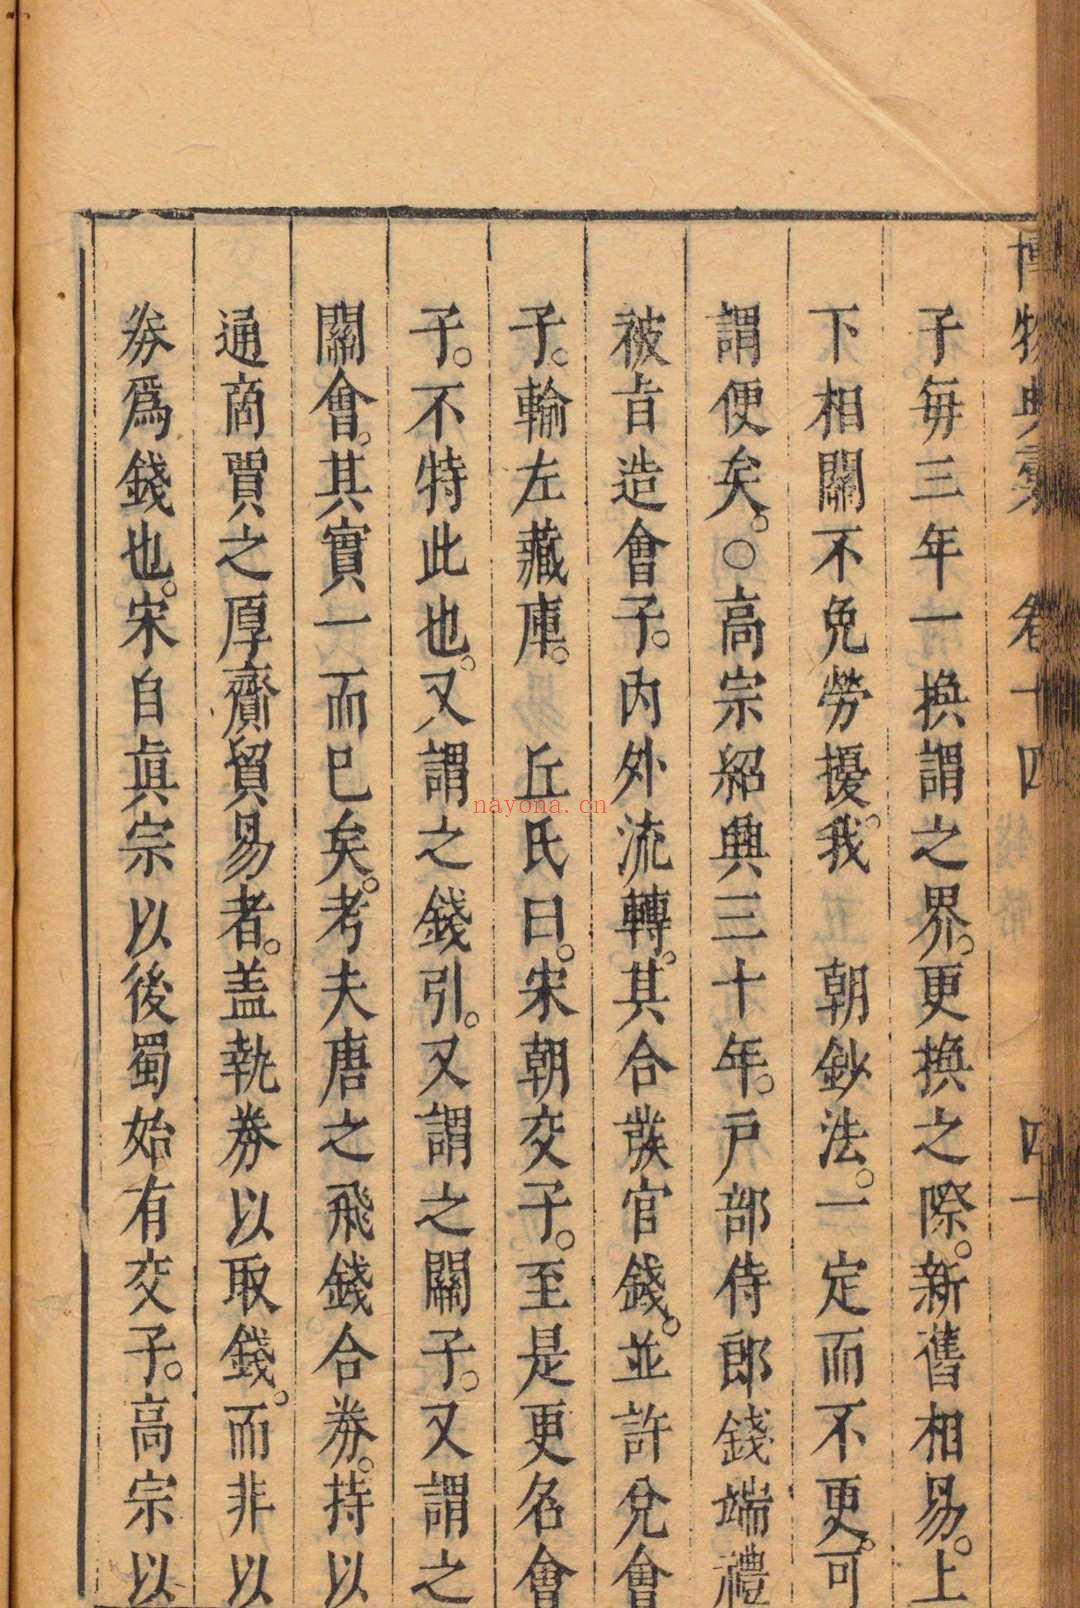 博物典彙 卷十四 四十
子每三年一換謂之界更換之際新舊相易上
下相關不免勞擾我 朝鈔法一定而不更可
謂便矣○高宗紹興三十年戶部侍郎錢端禮
被旨造會子內外流轉其合發官錢並許兌會
子輸左藏庫 丘氏曰宋朝交子至是更名會
子不特此也又謂之錢引又謂之關子又謂之
關會其實一而已矣考夫唐之飛錢合券持以
通商賈之厚齎貿易者蓋執券以取錢而非以
券爲錢也宋自眞宗以後蜀始有交子高宗以
nayona.cn